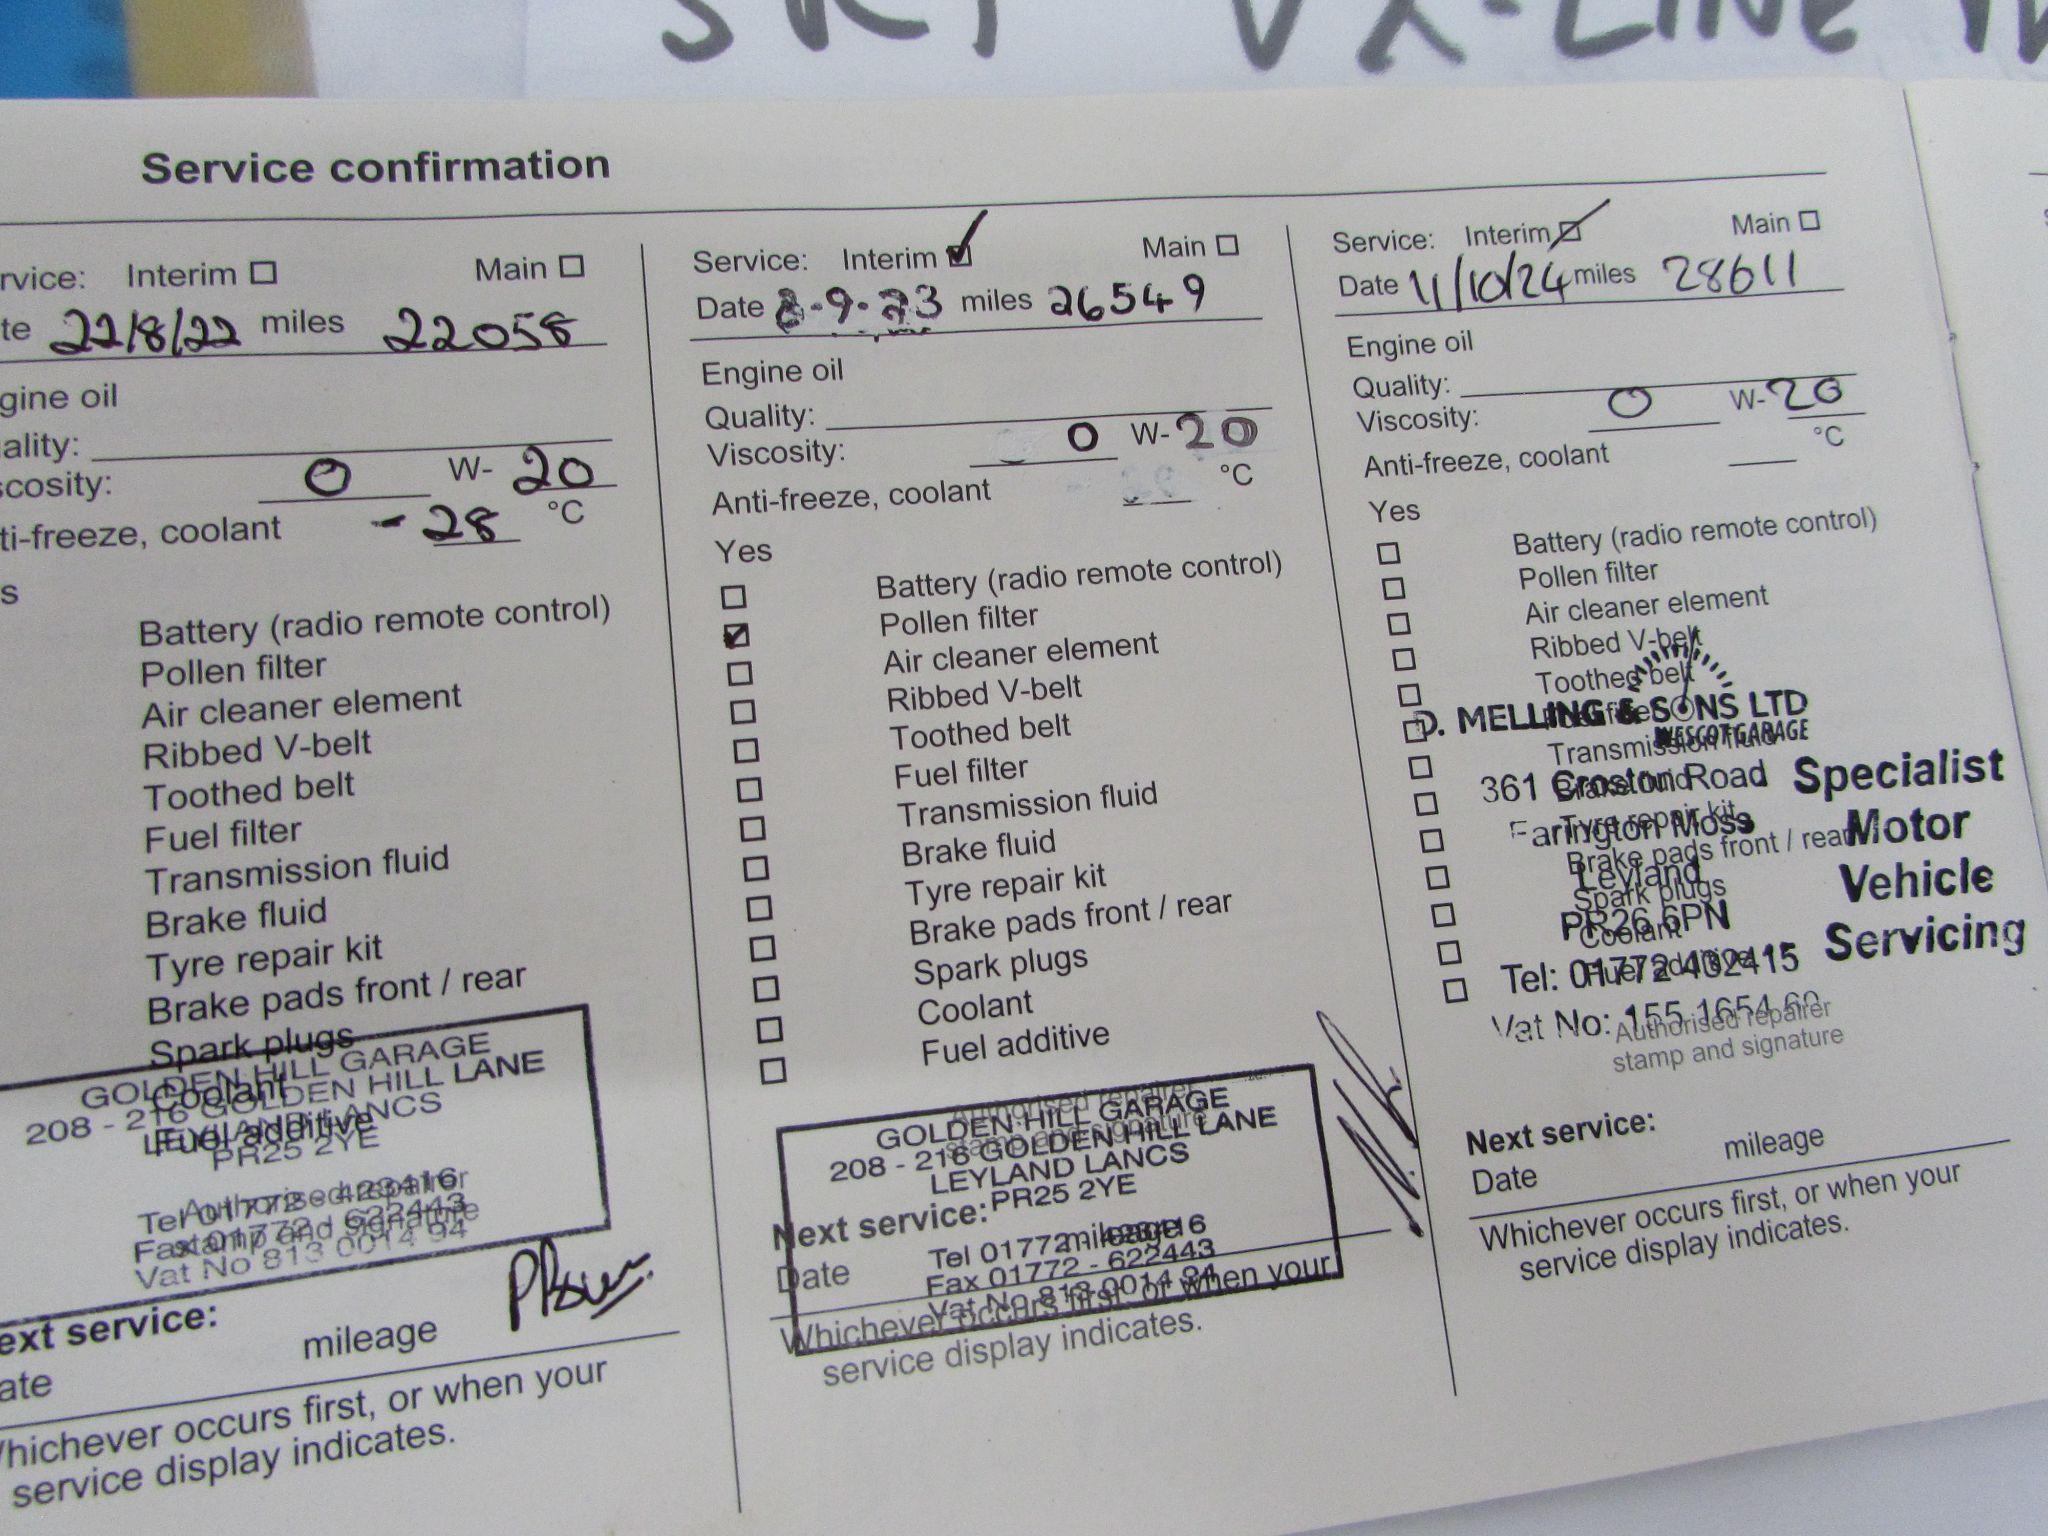 SRI VX-LINE
Service confirmation
rvice: Interim Main
te 22/8/22 miles 22058
gine oil
ality:
scosity: 0 W- 20
ti-freeze, coolant -28 °C
s
Battery (radio remote control)
Pollen filter
Air cleaner element
Ribbed V-belt
Toothed belt
Fuel filter
Transmission fluid
Brake fluid
Tyre repair kit
Brake pads front / rear
Spark plugs
Coolant
Fuel additive
GOLDEN HILL GARAGE
208 - 216 GOLDEN HILL LANE
LEYLAND LANCS
PR25 2YE
Authorised repairer
stamp and signature
Tel 01772 - 423416
Fax 01772 - 622443
Vat No 813 0014 94
ext service:
ate mileage
Whichever occurs first, or when your
service display indicates.
Service: Interim Main
Date 8-9-23 miles 26549
Engine oil
Quality:
Viscosity: 0 W- 20
Anti-freeze, coolant °C
Yes
Battery (radio remote control)
Pollen filter
Air cleaner element
Ribbed V-belt
Toothed belt
Fuel filter
Transmission fluid
Brake fluid
Tyre repair kit
Brake pads front / rear
Spark plugs
Coolant
Fuel additive
Authorised repairer
stamp and signature
GOLDEN HILL GARAGE
208 - 216 GOLDEN HILL LANE
LEYLAND LANCS
PR25 2YE
Tel 01772 - 423416
Fax 01772 - 622443
Vat No 813 0014 94
Next service:
Date mileage
Whichever occurs first, or when your
service display indicates.
Service: Interim Main
Date 11/10/24 miles 28611
Engine oil
Quality:
Viscosity: 0 W- 20
Anti-freeze, coolant °C
Yes
Battery (radio remote control)
Pollen filter
Air cleaner element
Ribbed V-belt
Toothed belt
Fuel filter
Transmission fluid
Brake fluid
Tyre repair kit
Brake pads front / rear
Spark plugs
Coolant
Fuel additive
D. MELLING & SONS LTD
WESCOT GARAGE
361 Croston Road
Farington Moss
Leyland
PR26 6PN
Tel: 01772 432415
Vat No: 155 1654 60
Specialist
Motor
Vehicle
Servicing
Authorised repairer
stamp and signature
Next service:
Date mileage
Whichever occurs first, or when your
service display indicates.